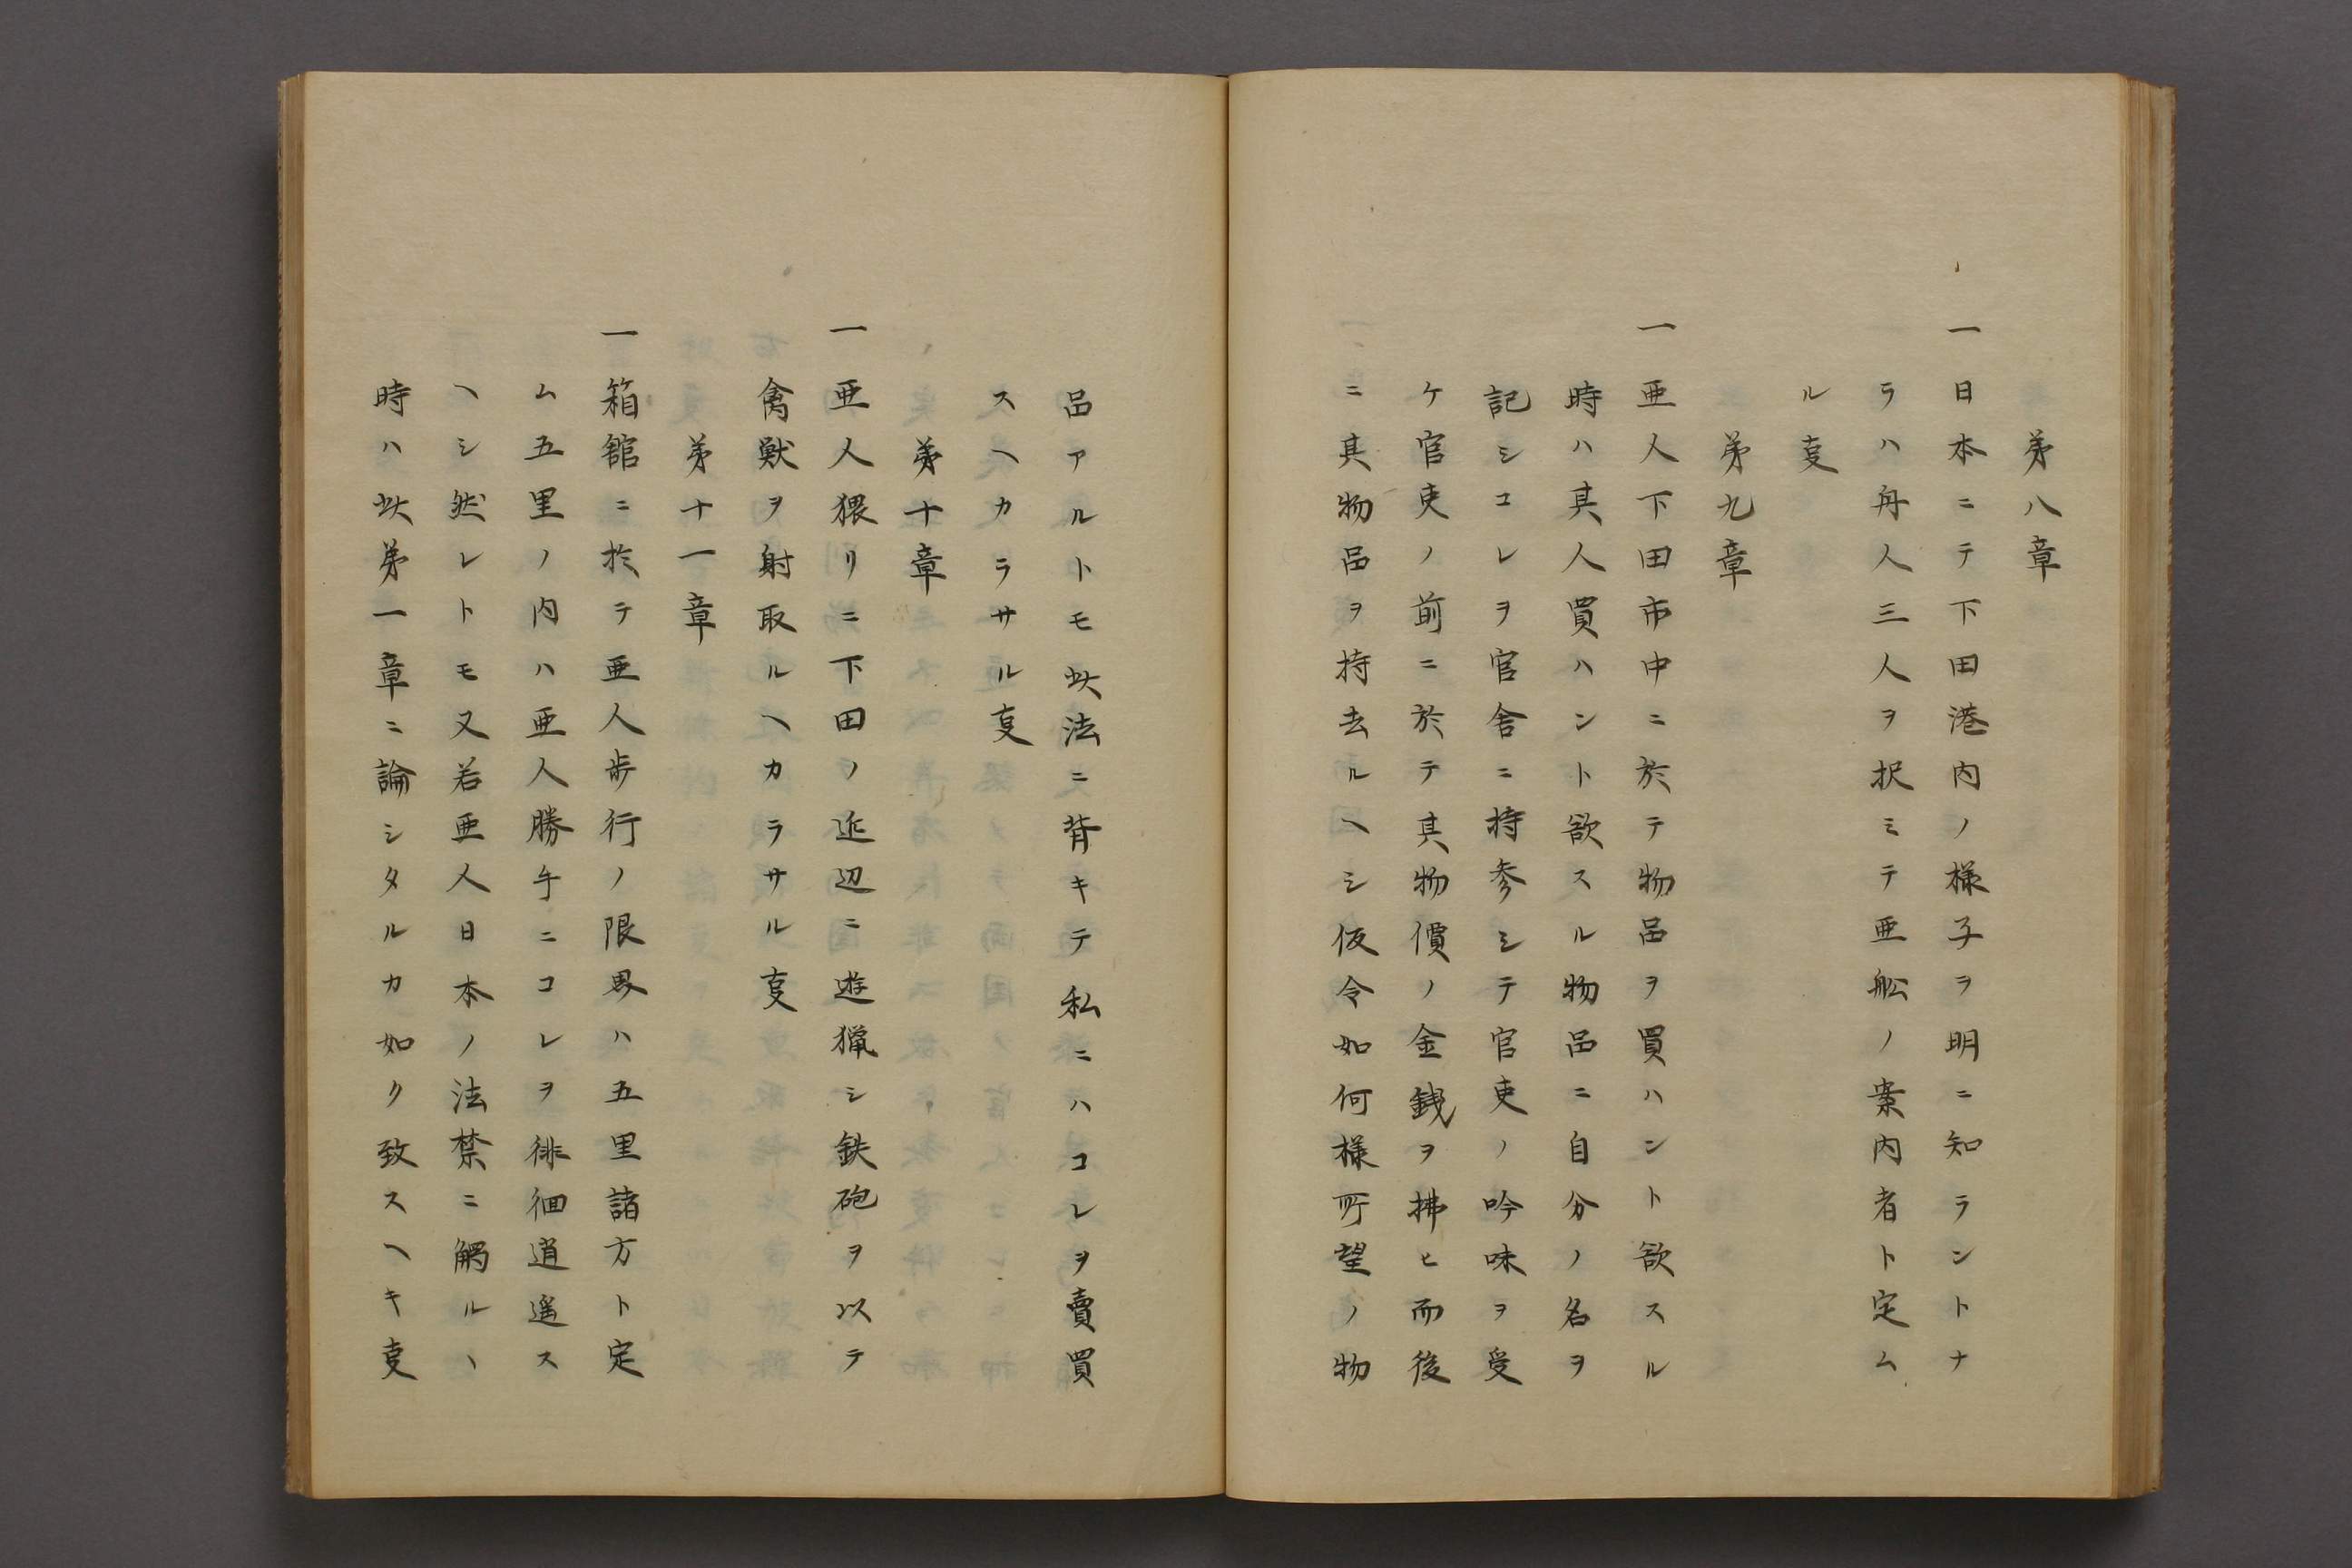 第八章
一日本ニテ下田港内ノ様子ヲ明ニ知ラントナ
ラハ舟人三人ヲ択ミテ亜舩ノ案内者ト定ム
ル㕝
第九章
一亜人下田市中ニ於テ物品ヲ買ハント欲スル
時ハ其人買ハント欲スル物品ニ自分ノ名ヲ
記シコレヲ官舎ニ持参シテ官吏ノ吟味ヲ受
ケ官吏ノ前ニ於テ其物價ノ金銭ヲ拂ヒ而後
ニ其物品ヲ持去ルヘシ仮令如何様所望ノ物
品アルトモ此法ニ背キテ私ニハコレヲ賣買
スヘカラサル㕝
第十章
一亜人猥リニ下田ノ近辺ニ遊獵シ鉄砲ヲ以テ
禽獣ヲ射取ルヘカラサル㕝
第十一章
一箱舘ニ於テ亜人歩行ノ限界ハ五里諸方ト定
ム五里ノ内ハ亜人勝手ニコレヲ徘徊逍遥ス
ヘシ然レトモ又若亜人日本ノ法禁ニ觸ルヽ
時ハ此第一章ニ論シタルカ如ク致スヘキ㕝